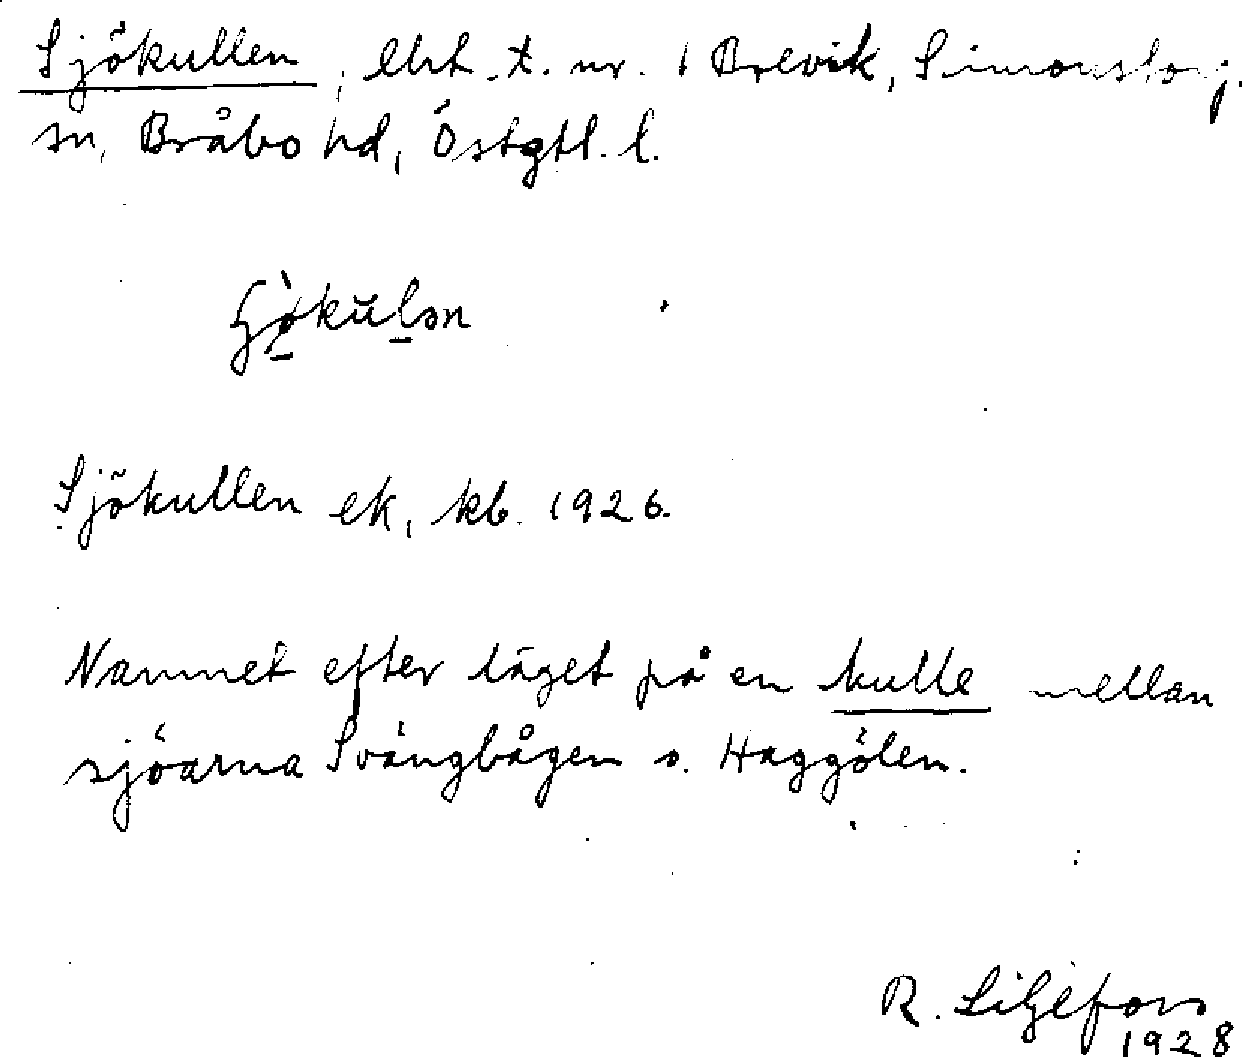 Sjökullen, lht. t. nr. 1 Brevik, Simonstorp.
sn, Bråbo hd, Östgtl. l.
Sjökullen ek, kb. 1926.
Namnet efter läget på en kulle mellan
sjöarna Svängbågen o. Haggölen.
R. Liljefors
1928